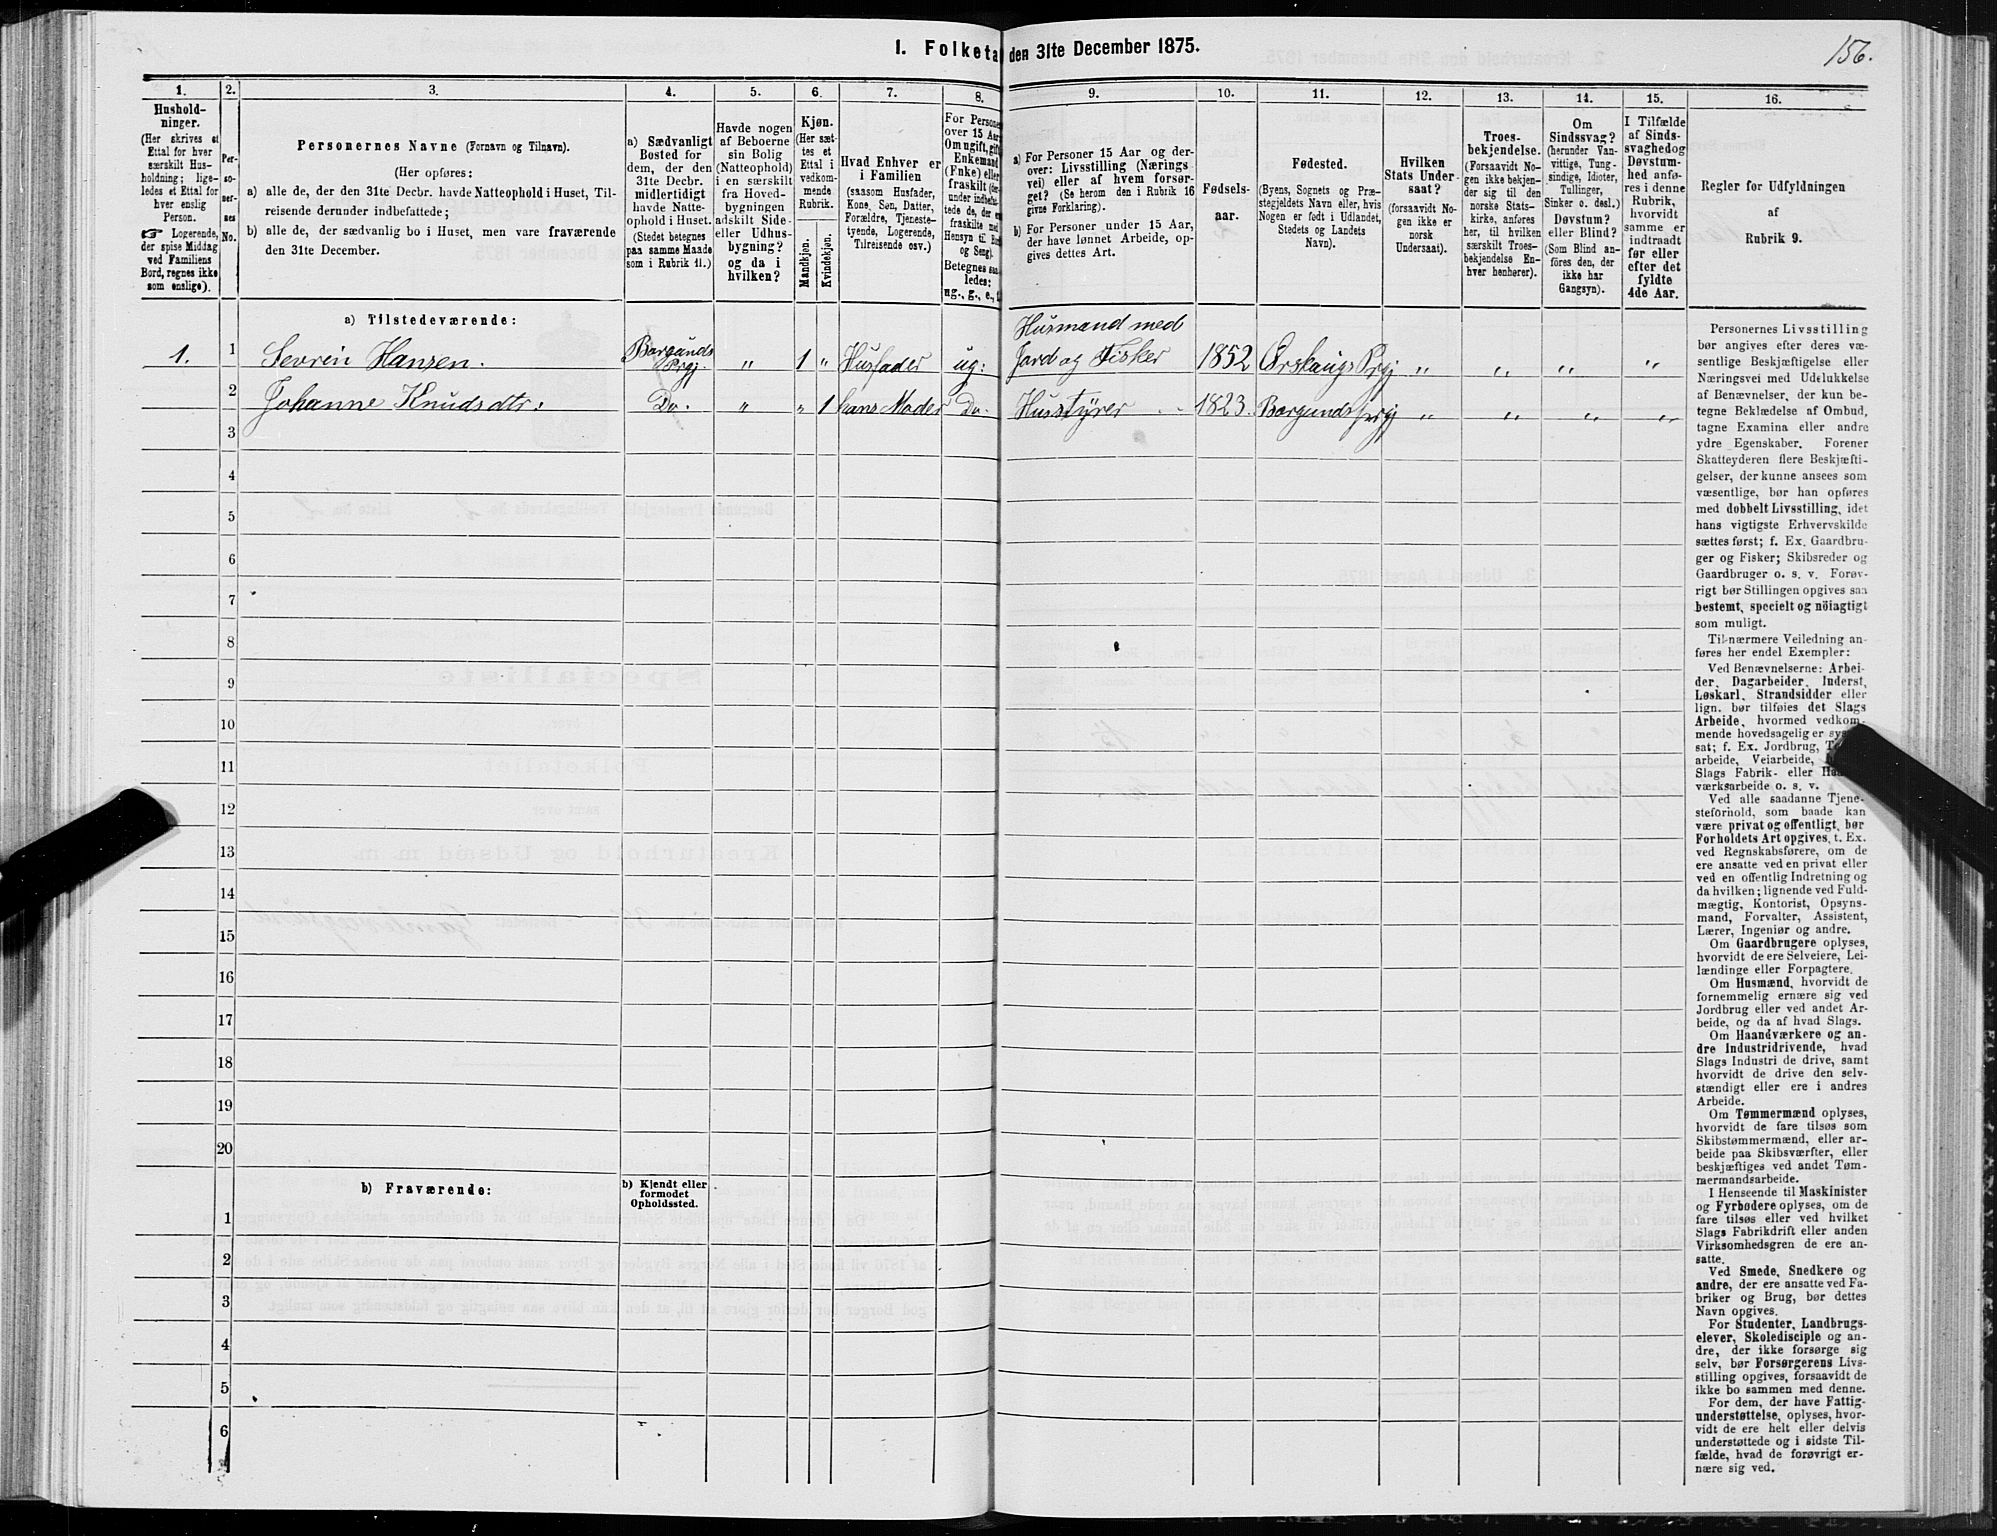 156.
I. Folketa den 31te December 1875.
1. 2. 3. 4. 5. 6. 7. 8. 9. 10. 11. 12. 13. 14. 15. 16.
Hushold-
ninger.
(Her skrives et
Ettal for hver
særskilt Hus-
holdning; lige-
ledes et Ettal for
hver enslig
Person.
☞ Logerende,
der spise Middag
ved Familiens
Bord, regnes ikke
som enslige).
Per-
so-
ner-
nes
No.
Personernes Navne (Fornavn og Tilnavn).
(Her opføres:
a) alle de, der den 31te Decbr. havde Natteophold i Huset, Til-
reisende derunder indbefattede;
b) alle de, der sædvanlig bo i Huset, men vare fraværende
den 31te December.
a) Sædvanligt
Bosted for
dem, der den
31te Decbr.
midlertidigt
havde Natte-
ophold i Huset.
(Stedet betegnes
paa samme Maade
som i Rubrik 11.)
Havde nogen
af Beboerne
sin Bolig
(Natteophold)
i en særskilt
fra Hoved-
bygningen
adskilt Side-
eller Udhus-
bygning?
og da i
hvilken?
Kjøn.
(Her sæt-
tes et
Ettal i
vedkom-
mende
Rubrik.
Mandkjøn.
Kvindekjøn.
Hvad Enhver er
i Familien
(saasom Husfader,
Kone, Søn, Datter,
Forældre, Tjeneste-
tyende, Logerende,
Tilreisende osv.)
For Persone
over 15 Aar
Om ugift, gift
Enkemand
(Enke) eller
fraskilt (de-
under indbefat-
tede de, der e
fraskilte med
Hensyn til B
og Seng).
Betegnes saa
ledes:
ug., g., e.,
a) For Personer 15 Aar og der-
over: Livsstilling (Nærings-
vei) eller af hvem forsør-
get? (Se herom den i Rubrik 16
givne Forklaring).
b) For Personer under 15 Aar,
der have lønnet Arbeide, op-
gives dettes Art.
Fødsels-
aar.
Fødested.
(Byens, Sognets og Præ-
stegjeldets Navn eller, hvis
Nogen er født i Udlandet,
Stedets og Landets
Navn).
Hvilken
Stats Under-
saat?
(forsaavidt No-
gen ikke er
norsk
Undersaat).
Troes-
bekjendelse.
(Forsaavidt No-
gen ikke bekjen-
der sig til den
norske Stats-
kirke, anføres
her, til hvilken
særskilt Troes-
bekjendelse En-
hver henhører).
Om
Sindssvag?
(herunder Van-
vittige, Tung-
sindige, Idioter,
Tullinger,
Sinker o. desl.)
Døvstum?
eller Blind?
(Som Blind an-
føres den, der
ikke har
Gangsyn).
I Tilfælde
af Sinds-
svaghed og
Døvstum-
hed anfø-
res i denne
Rubrik,
hvorvidt
samme er
indtraadt
før eller
efter det
fyldte
4de Aar.
Regler for Udfyldningen
af
Rubrik 9.
a) Tilstedeværende:
1. 1 Sevrin Hansen. Borgunds Prgj. " 1 " Husfader ug: Husmand med Jord og Fisker 1852 Ørskaugs Prgj " " " "
2 Johanne Knudsdtr: Do. " " 1 hans Moder Do. Husstyrer 1823. Borgunds prgj " " " "
3
4
5
6
7
8
9
10
11
12
13
14
15
16
17
18
19
20
b) Fraværende:
b) Kjendt eller
formodet
Opholdssted.
1
2
3
4
5
6
Personernes Livsstilling
bør angives efter deres væ-
sentlige Beskjæftigelse eller
Næringsvei med Udelukkelse
af Benævnelser, der kun be-
tegne Beklædelse af Ombud,
tagne Examina eller andre
ydre Egenskaber. Forener
Skatteyderen flere Beskjæfti-
gelser, der kunne ansees som
væsentlige, bør han opføres
med dobbelt Livsstilling, idet
hans vigtigste Erhvervskilde
sættes først; f. Ex. Gaardbru-
ger og Fisker; Skibsreder og
Gaardbruger o. s. v. Forøv-
rigt bør Stillingen opgives saa
bestemt, specielt og nöiagtigt
som muligt.
Til nærmere Veiledning an-
føres her endel Exempler:
Ved Benævnelserne: Arbei-
der, Dagarbeider, Inderst,
Løskarl, Strandsidder eller
lign. bør tilføies det Slags
Arbeide, hvormed vedkom-
mende hovedsagelig er sys
sat; f. Ex. Jordbrug, T
arbeide, Veiarbeide,
Slags Fabrik- eller Ha
værksarbeide o. s. v.
Ved alle saadanne Tjene-
steforhold, som baade kan
være privat og offentligt, bør
Forholdets Art opgives, t. Ex.
ved Regnskabsførere, om de
ere ansatte ved en privat eller
ved en offentlig Indretning og
da hvilken; lignende ved Fuld-
mægtig, Kontorist, Opsyns-
mand, Forvalter, Assistent,
Lærer, Ingeniør og andre.
Om Gaardbrugere oplyses,
hvorvidt de ere Selveiere, Lei-
lændinge eller Forpagtere.
Om Husmænd, hvorvidt de
fornemmelig ernære sig ved
Jordbrug eller ved andet Ar-
beide, og da af hvad Slags.
Om Haandværkere og an-
dre Industridrivende, hvad
Slags Industri de drive, samt
hvorvidt de drive den selv-
stændigt eller ere i andres
Arbeide.
Om Tømmermænd oplyses,
hvorvidt de fare tilsøs som
Skibstømmermænd, eller ar-
beide paa Skibsværfter, eller
beskjæftiges ved andet Tøm-
mermandsarbeide.
I Henseende til Maskinister
og Fyrbødere oplyses, om de
fare tilsøs eller ved hvilket
Slags Fabrikdrift eller anden
Virksomhedsgren de ere an-
satte.
Ved Smede, Snedkere og
andre, der ere ansatte ved Fa-
briker og Brug, bør dettes
Navn opgives.
For Studenter, Landbrugs-
elever, Skoledisciple og an-
dre, der ikke forsørge sig
selv, bør Forsørgerens Livs-
stilling opgives, forsaavidt de
ikke bo sammen med denne.
For dem, der have Fattig-
understøttelse, oplyses, hvor-
vidt de ere helt eller delvis
understøttede og i sidste Til-
fælde, hvad de forøvrigt er-
nære sig ved.